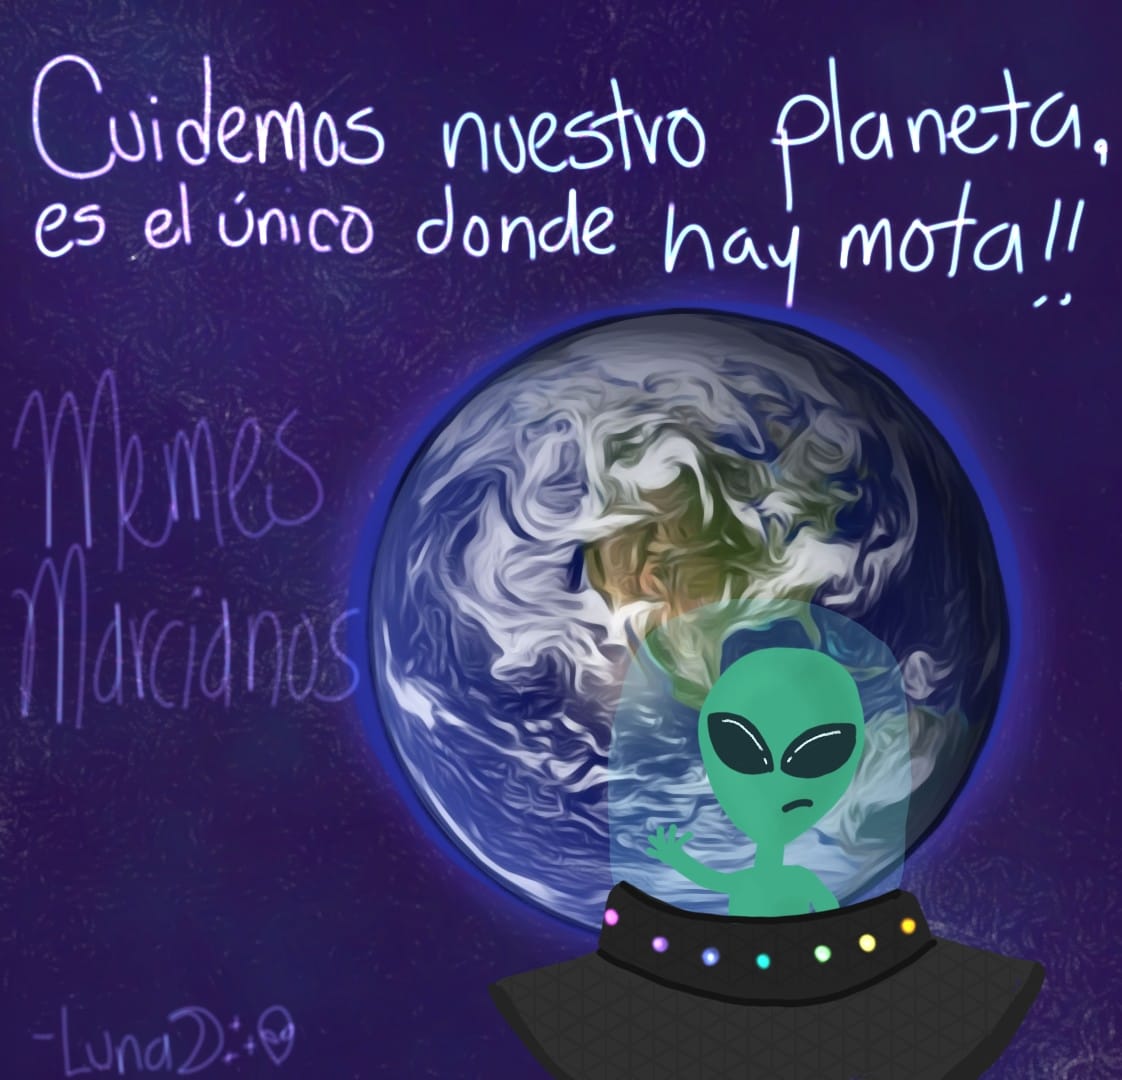 Cuidemos nuestro planeta,
es el único donde hay mota!!
Memes
Marcianos
-Luna